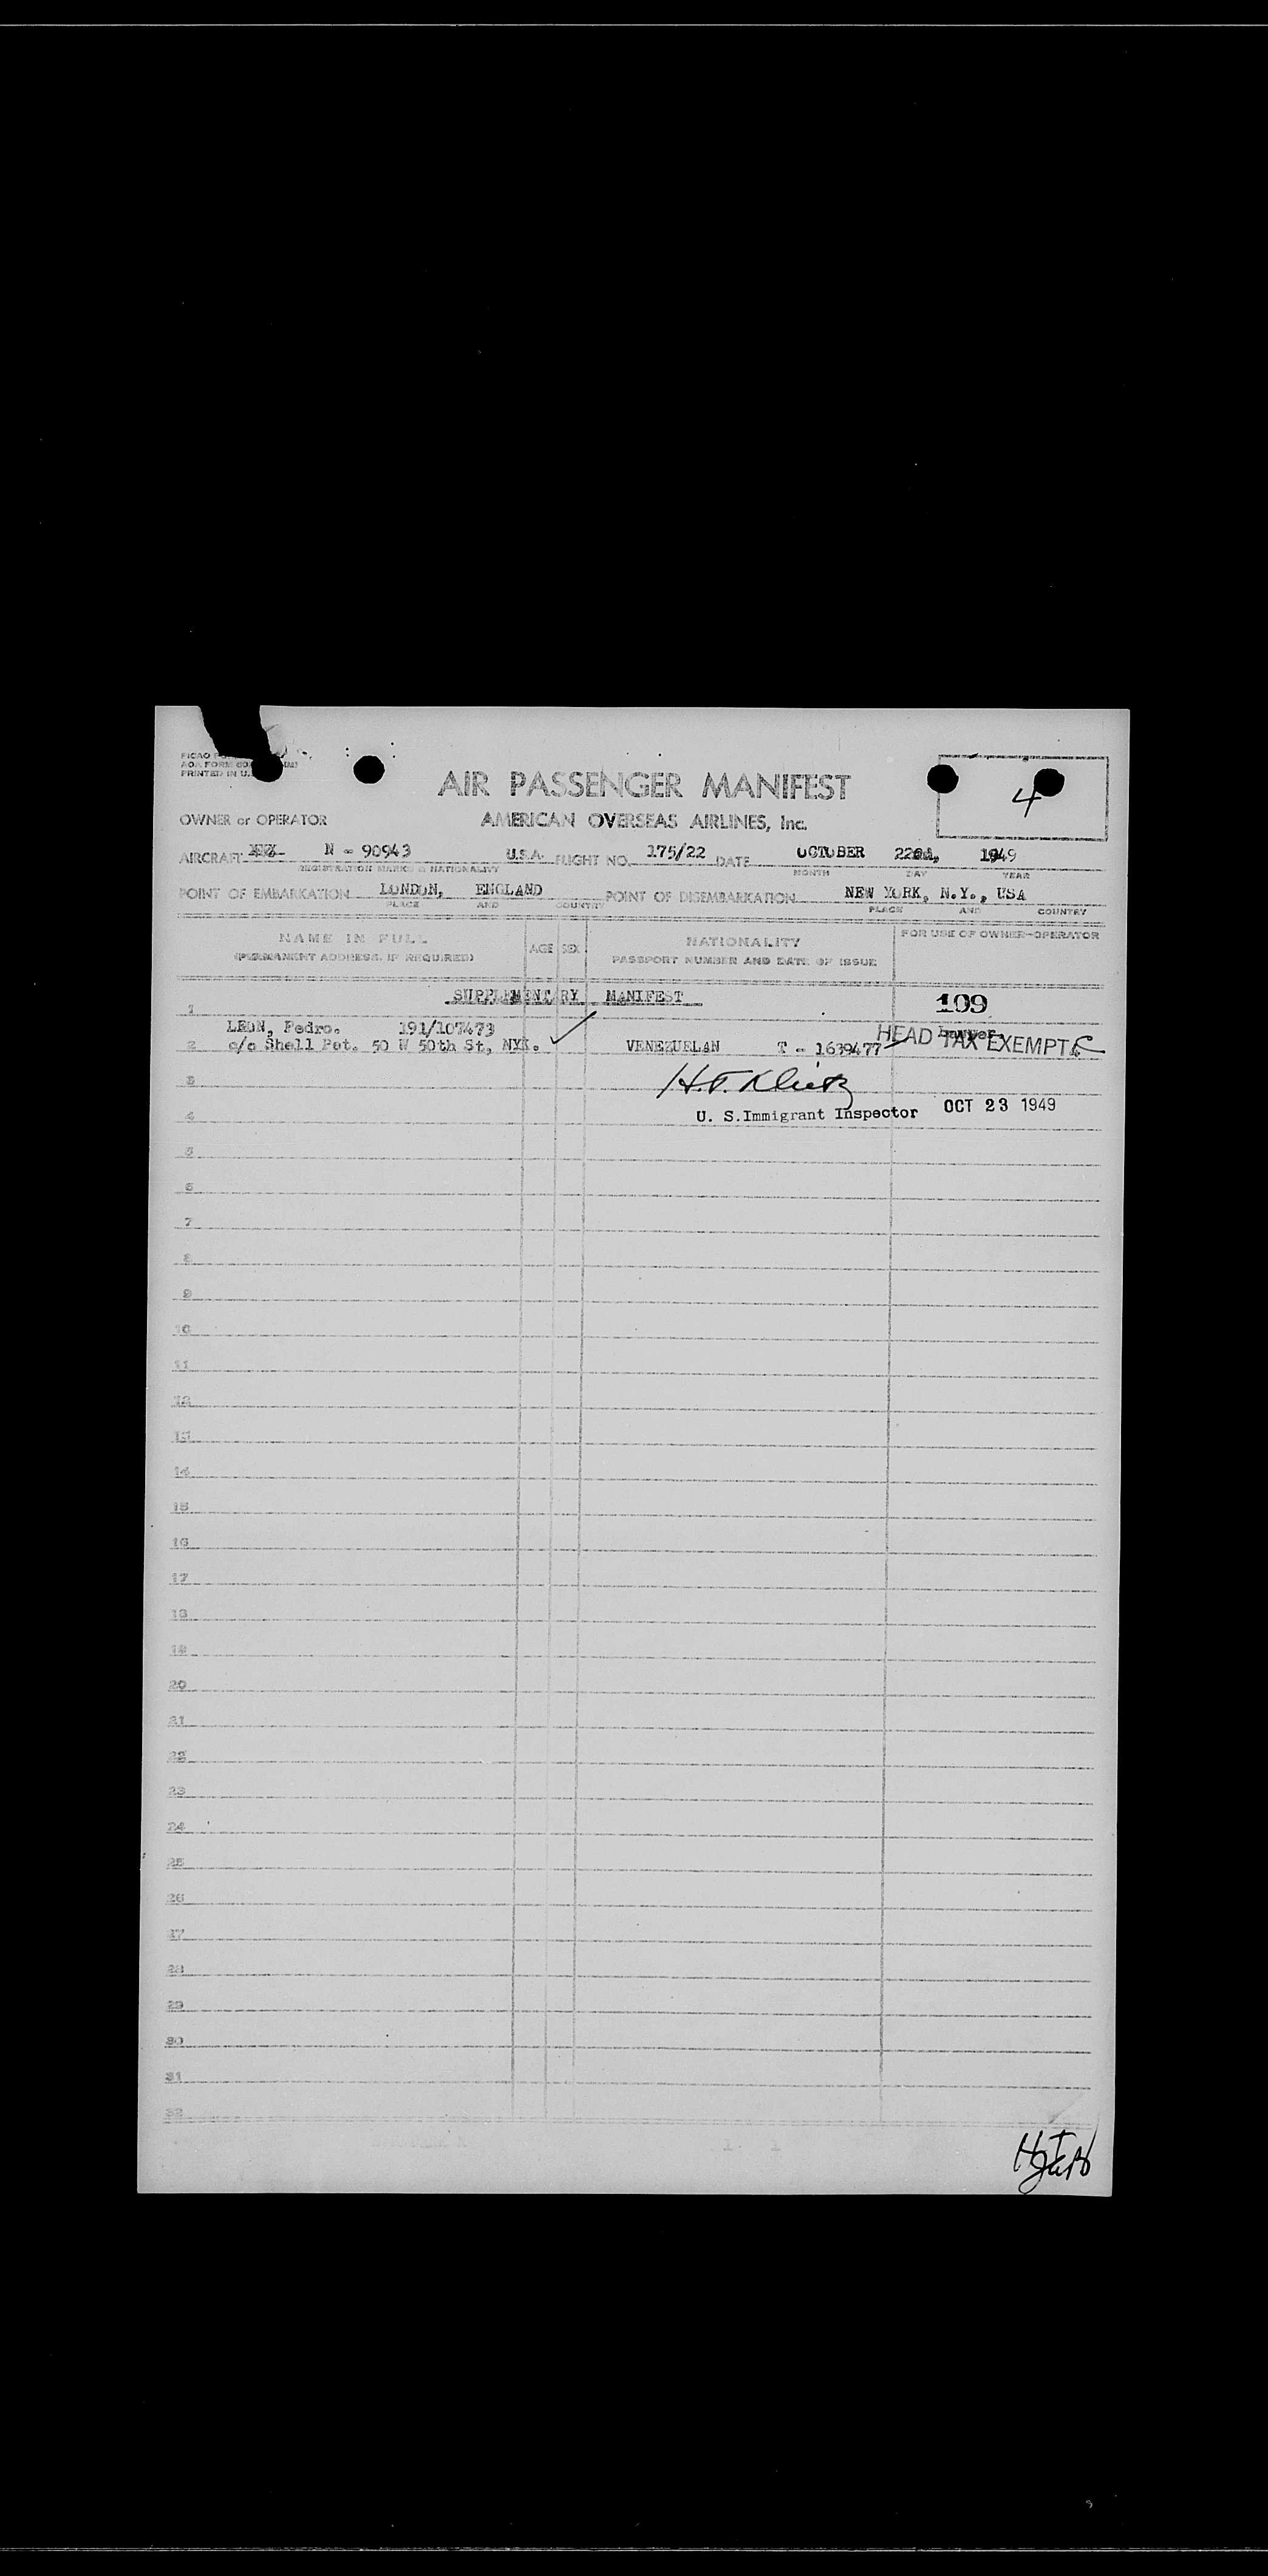 PICAO
AOA FORM
PRINTED IN U.S.
4
AIR PASSENGER MANIFEST
OWNER or OPERATOR AMERICAN OVERSEAS AIRLINES, Inc.
AIRCRAFT N - 90943 U.S.A. FLIGHT NO. 175/22 DATE OCTOBER 22nd, 1949
REGISTRATION MARKS & NATIONALITY MONTH DAY YEAR
POINT OF EMBARKATION LONDON, ENGLAND POINT OF DISEMBARKATION NEW YORK, N.Y., USA
PLACE AND COUNTRY PLACE AND COUNTRY
NAME IN FULL AGE SEX NATIONALITY FOR USE OF OWNER-OPERATOR
(PERMANENT ADDRESS, IF REQUIRED) PASSPORT NUMBER AND DATE OF ISSUE
SUPPLEMENTARY MANIFEST 109
1
LEON, Pedro. 191/107473
2 c/o Shell Pet. 50 W 50th St, NYK. VENEZUELAN T - 1639477 HEAD TAX EXEMPT
3
4 U. S. Immigrant Inspector OCT 23 1949
5
6
7
8
9
10
11
12
13
14
15
16
17
18
19
20
21
22
23
24
25
26
27
28
29
30
31
32